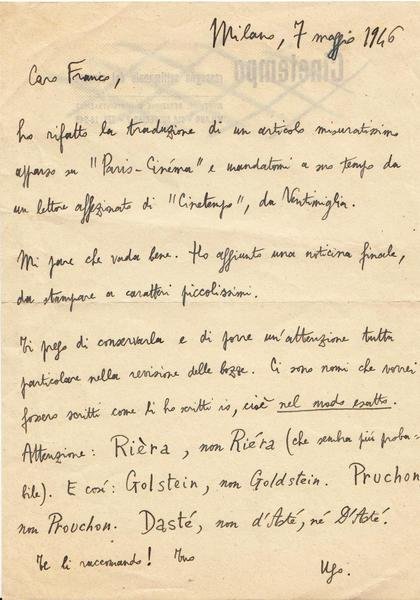 Milano, 7 maggio 1946
Cinetempo
Caro Franco,
ho rifatto la traduzione di un articolo misuratissimo
apparso su "Paris-Cinéma" e mandatomi a suo tempo da
un lettore affezionato di "Cinetempo", da Ventimiglia.
Mi pare che vada bene. Ho aggiunto una noticina finale,
da stampare a caratteri piccolissimi.
Ti prego di conservarla e di porre un'attenzione tutta
particolare nella revisione delle bozze. Ci sono nomi che vorrei
fossero scritti come li ho scritti io, cioè nel modo esatto.
Attenzione: Rièra, non Riéra (che sembra più proba-
bile). E così: Golstein, non Goldstein. Pruchon
non Prouchon. Dasté, non d'Asté, né D'Asté.
Te li raccomando! Tuo
Ugo.